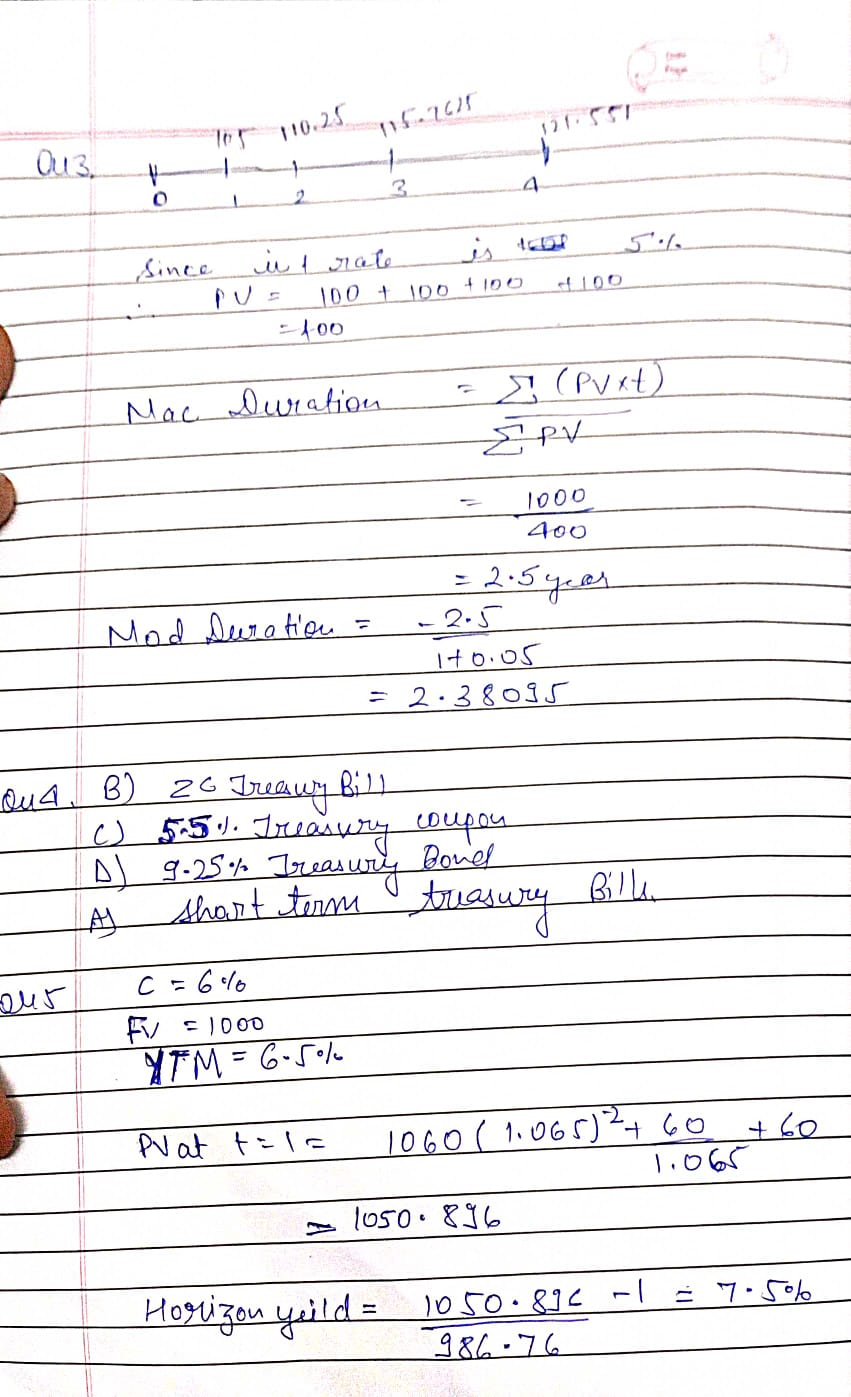 105 110.25 115.7625 121.551
Qu3.
0 1 2 3 4
Since int rate is 5%
∴ PV = 100 + 100 + 100 + 100
= 400
Mac Duration = Σ (PV×t)
Σ PV
= 1000
400
= 2.5 year
Mod Duration = - 2.5
1+0.05
= 2.38095
Qu4. B) ZC Treasury Bill
C) 5.5% Treasury coupon
D) 9.25% Treasury Bond
A) Short term treasury Bills
Qu5 C = 6%
FV = 1000
YTM = 6.5%
PV at t=1 = 1060 (1.065)⁻² + 60 + 60
1.065
= 1050.896
Horizon yeild = 1050.896 -1 = 7.5%
986.76